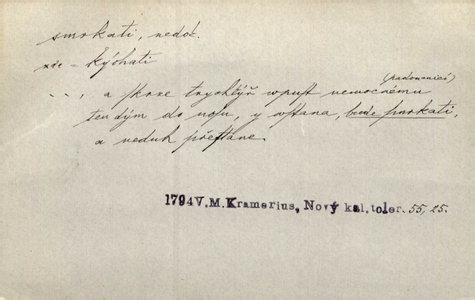 smrkati, nedok.
vře - kýchati
..., a skrze trychtýř wpust nemocnému (padoucnicí)
ten dým do nosu, y wstana, bude smrkati,
a neduh přestane.
1794 V. M. Kramerius, Nový kal. toler. 55, 25.